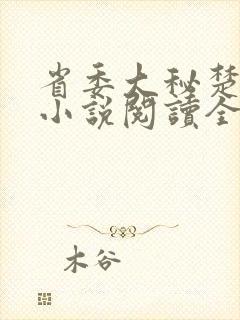 省委大秘楚
小說閱讀全
木谷